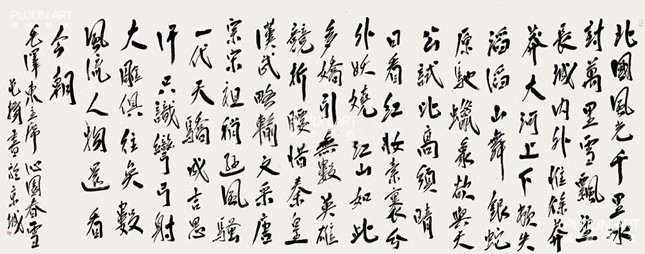 北國風光千里冰
封萬里雪飄望
長城内外惟餘莽
莽大河上下頓失
滔滔山舞銀蛇
原馳蠟象欲與天
公試比高須晴
日看紅妝素裹分
外妖嬈江山如此
多嬌引無數英雄
競折腰惜秦皇
漢武略輸文采唐
宗宋祖稍遜風騷
一代天驕成吉思
汗只識彎弓射
大雕俱往矣數
風流人物還看
今朝
毛澤東主席沁園春雪
書於京城
PUJUN ART